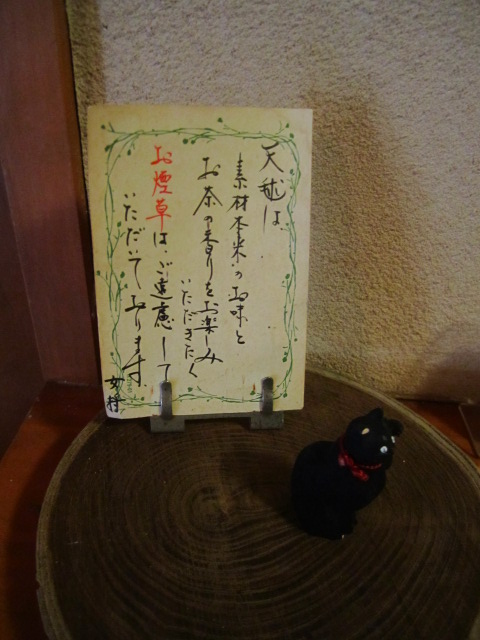 天毬は
素材本来のお味と
お茶の香りをお楽しみ
いただきたく
お煙草は、ご遠慮して
いただいております
女将